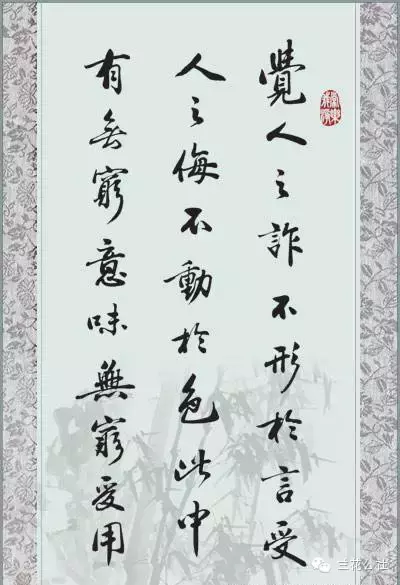 覺人之詐不形於言受
人之侮不動於色此中
有無窮意味無窮受用
兰花公社